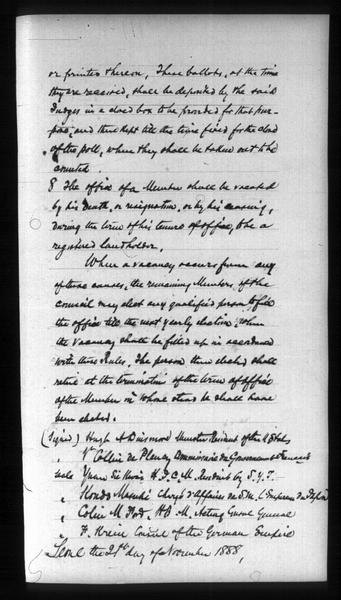 or printed thereon. These ballots, at the time
they are received, shall be deposited by the said
Judges in a closed box to be provided for that pur-
pose, and there kept till the time fixed for the close
of the poll, when they shall be taken out to be
counted.
8 The office of a Member shall be vacated
by his death, or resignation, or by his ceasing,
during the term of his tenure of office, to be a
registered landholder.
When a vacancy occurs from any
of these causes, the remaining Members of the
council may elect any qualified person to fill
the office till the next yearly election, when
the vacancy shall be filled up in accordance
with these Rules. The person thus elected shall
retire at the termination of the term of office
of the Member in whose stead he shall have
been elected.
(Signed) Hugh A Dinsmore Minister Resident of the U States
" V. Collin de Plancy Commissaire du Gouvernement Français
seals Yuan Sie Kwai H.I.C.M. Resident by S.Y.T.
" Kondo Masuki Chargé d'Affaires de S.M. L'Empereur du Japon
" Colin M Ford, H B M, Acting Consul General
" F. Krien Consul of the German Empire
Seoul the 21st day of November 1888,